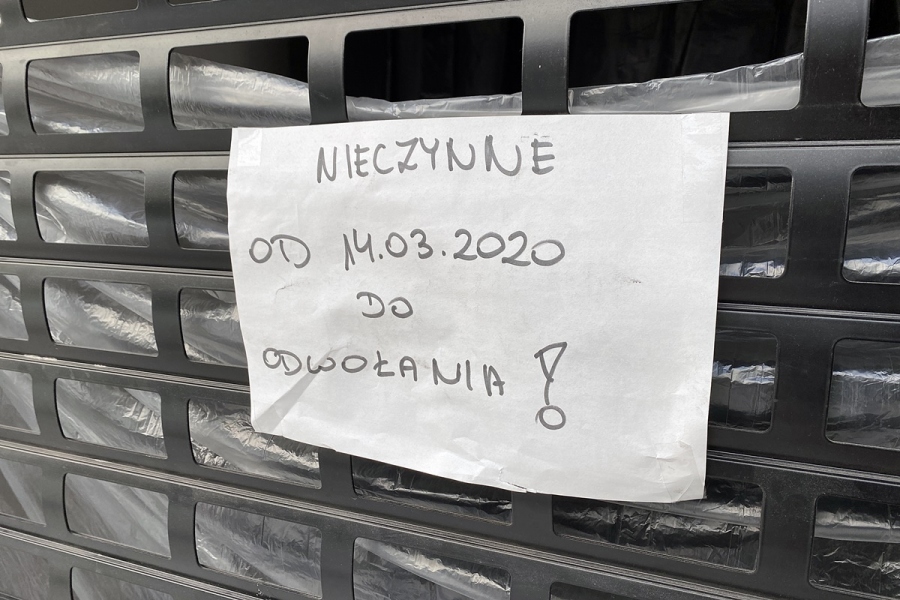 NIECZYNNE
OD 14.03.2020
DO
ODWOŁANIA !